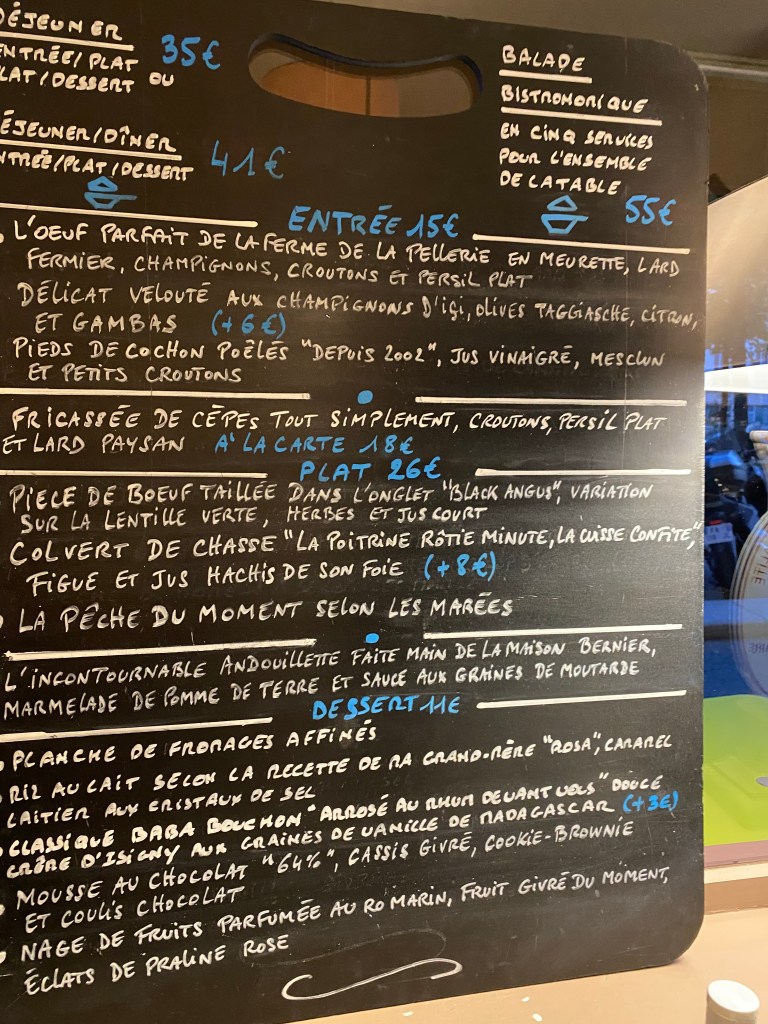 DÉJEUNER
ENTRÉE/PLAT 35€
PLAT/DESSERT OU
DÉJEUNER/DÎNER
ENTRÉE/PLAT/DESSERT 41€
BALADE
BISTRONOMIQUE
EN CINQ SERVICES
POUR L'ENSEMBLE
DE LA TABLE
55€
ENTRÉE 15€
L'OEUF PARFAIT DE LA FERME DE LA PELLERIE EN MEURETTE, LARD
FERMIER, CHAMPIGNONS, CROUTONS ET PERSIL PLAT
DÉLICAT VELOUTÉ AUX CHAMPIGNONS D'ICI, OLIVES TAGGIASCHE, CITRON,
ET GAMBAS (+6€)
PIEDS DE COCHON POÊLÉS "DEPUIS 2002", JUS VINAIGRÉ, MESCLUN
ET PETITS CROUTONS
FRICASSÉE DE CÊPES TOUT SIMPLEMENT, CROUTONS, PERSIL PLAT
ET LARD PAYSAN A' LA CARTE 18€
PLAT 26€
PIECE DE BOEUF TAILLÉE DANS L'ONGLET "BLACK ANGUS", VARIATION
SUR LA LENTILLE VERTE, HERBES ET JUS COURT
COLVERT DE CHASSE "LA POITRINE RÔTIE MINUTE, LA CUISSE CONFITE,"
FIGUE ET JUS HACHIS DE SON FOIE (+8€)
LA PÊCHE DU MOMENT SELON LES MARÉES
L'INCONTOURNABLE ANDOUILLETTE FAITE MAIN DE LA MAISON BERNIER,
MARMELADE DE POMME DE TERRE ET SAUCE AUX GRAINES DE MOUTARDE
DESSERT 11€
PLANCHE DE FROMAGES AFFINÉS
RIZ AU LAIT SELON LA RECETTE DE MA GRAND-MÈRE "ROSA", CARAMEL
LAITIER AUX CRISTAUX DE SEL
CLASSIQUE BABA BOUCHON "ARROSÉ AU RHUM DEVANT VOUS" DOUCE
CRÈME D'ISIGNY AUX GRAINES DE VANILLE DE MADAGASCAR (+3€)
MOUSSE AU CHOCOLAT "64%", CASSIS GIVRÉ, COOKIE-BROWNIE
ET COULIS CHOCOLAT
NAGE DE FRUITS PARFUMÉE AU ROMARIN, FRUIT GIVRÉ DU MOMENT,
ÉCLATS DE PRALINE ROSE